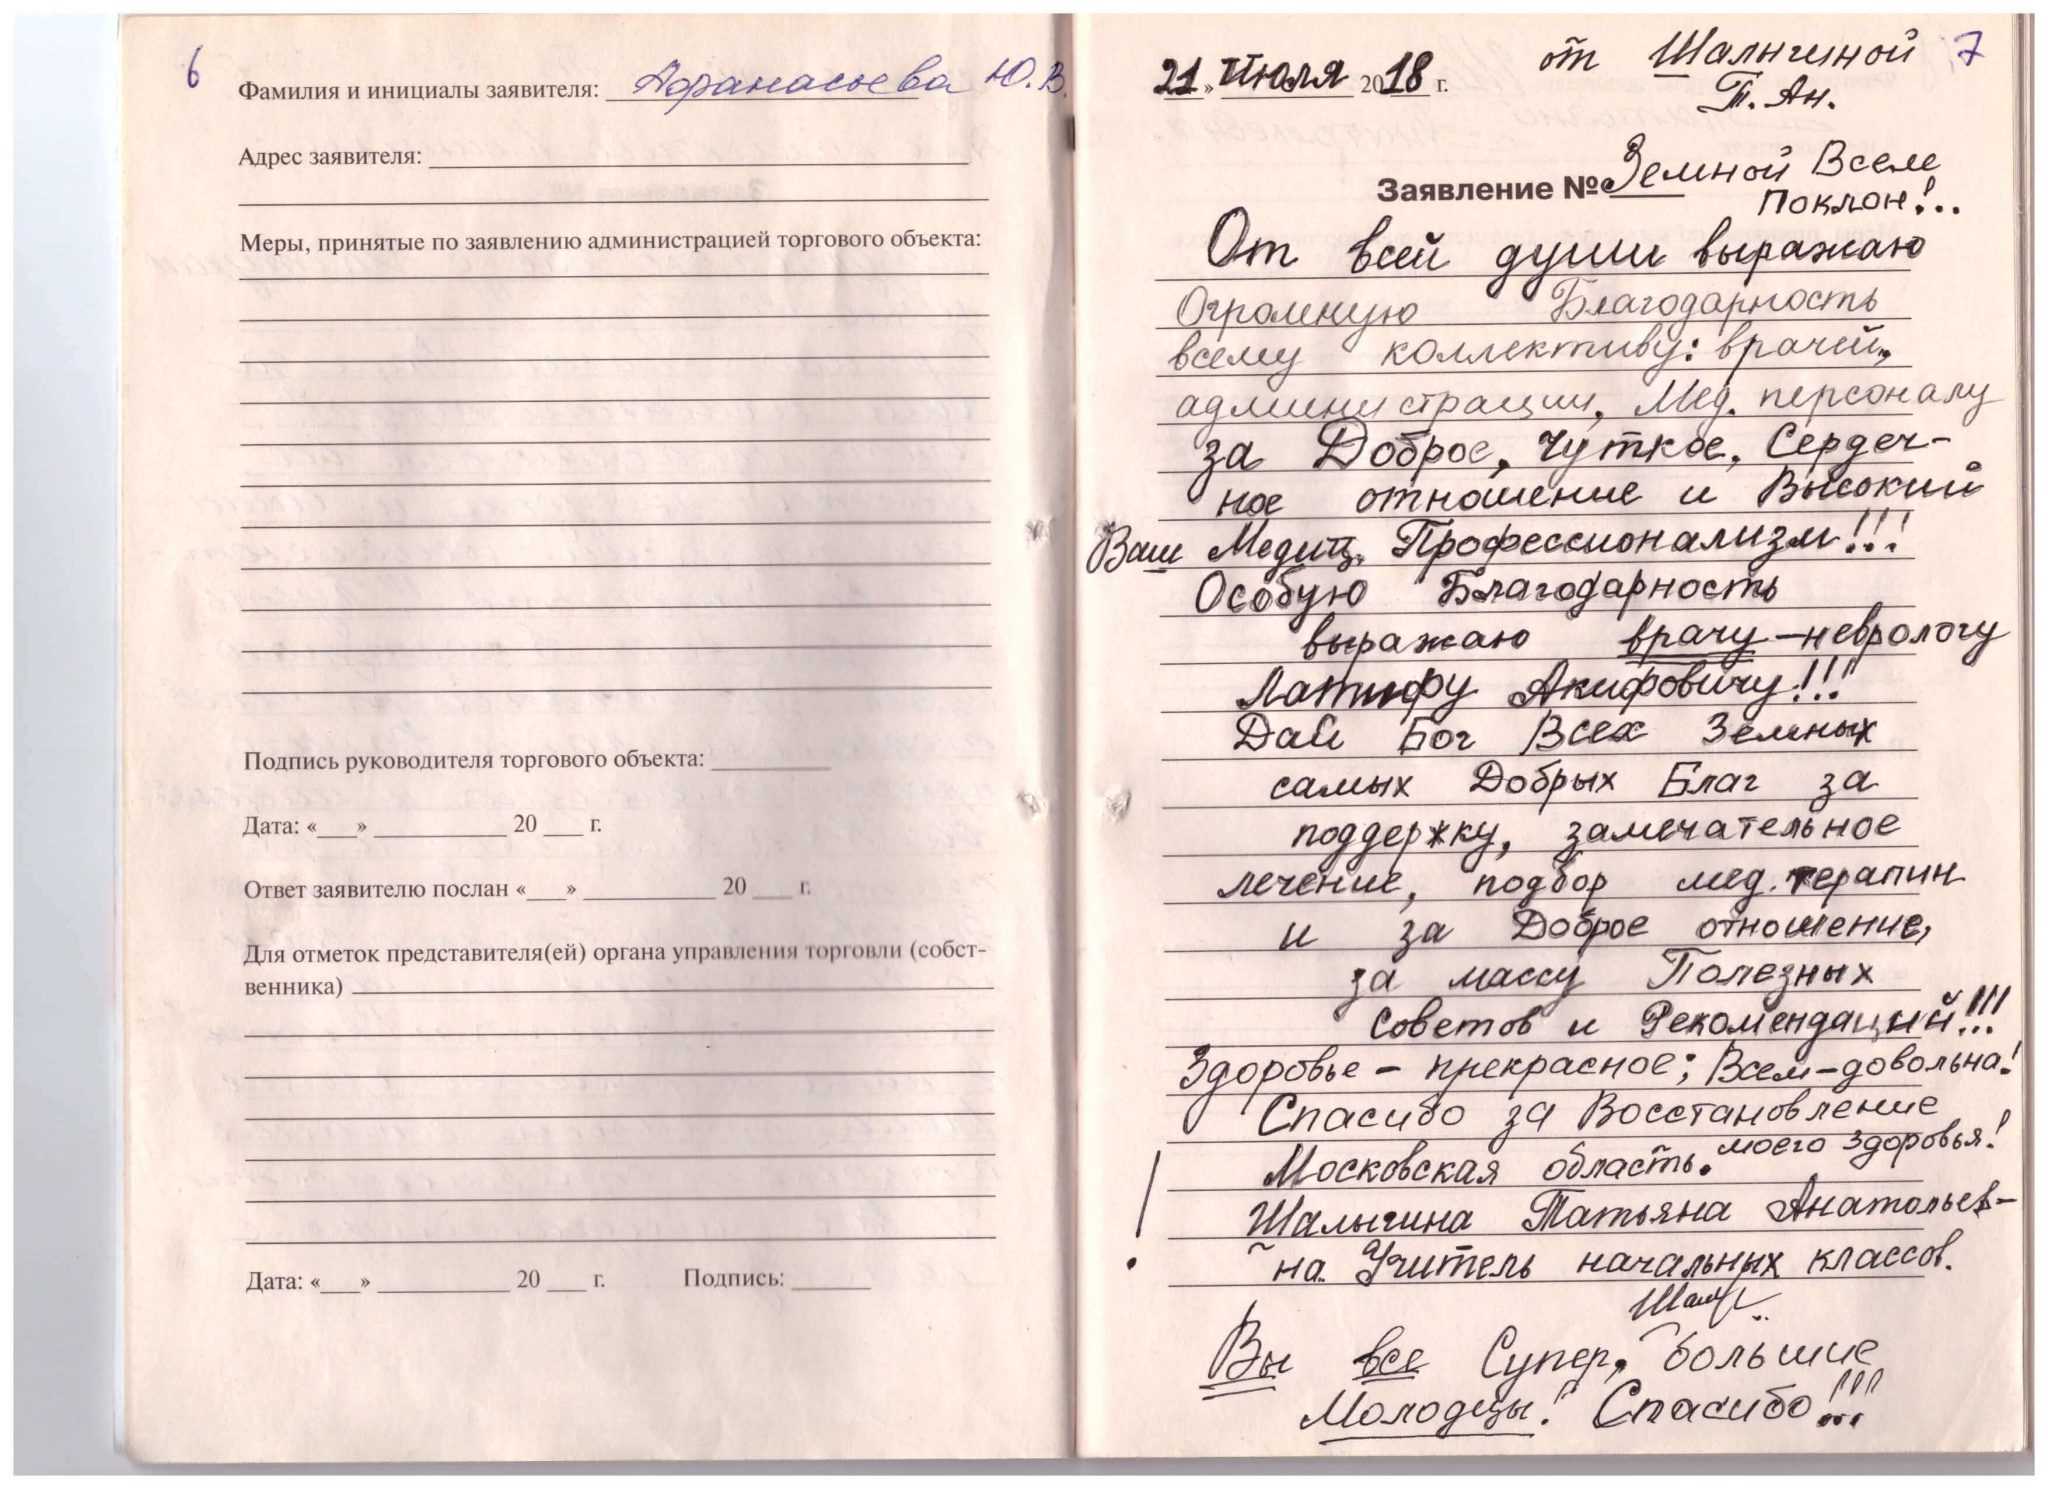 6
Фамилия и инициалы заявителя: Афанасьева Ю.В.
Адрес заявителя:
Меры, принятые по заявлению администрацией торгового объекта:
Подпись руководителя торгового объекта:
Дата: «___» ________ 20 ___ г.
Ответ заявителю послан «___» ________ 20 ___ г.
Для отметок представителя(ей) органа управления торговли (собст-
венника)
Дата: «___» ________ 20 ___ г. Подпись: ______
7
21» Июля 2018 г. от Шалыгиной
Т. Ан.
Заявление № Земной Всем
Поклон!..
От всей души выражаю
Огромную Благодарность
всему коллективу: врачей,
администрации, Мед. персоналу
за Доброе, Чуткое, Сердеч-
ное отношение и Высокий
Ваш Медиц. Профессионализм!!!
Особую Благодарность
выражаю врачу-неврологу
Латифу Акифовичу!!!
Дай Бог Всех Земных
самых Добрых Благ за
поддержку, замечательное
лечение, подбор мед. терапии
и за Доброе отношение,
за массу Полезных
советов и Рекомендаций!!!
Здоровье - прекрасное; Всем-довольна!
Спасибо за Восстановление
моего здоровья!
Московская область.
Шалыгина Татьяна Анатольев-
на. Учитель начальных классов.
Вы все Супер, большие
Молодцы! Спасибо!!!